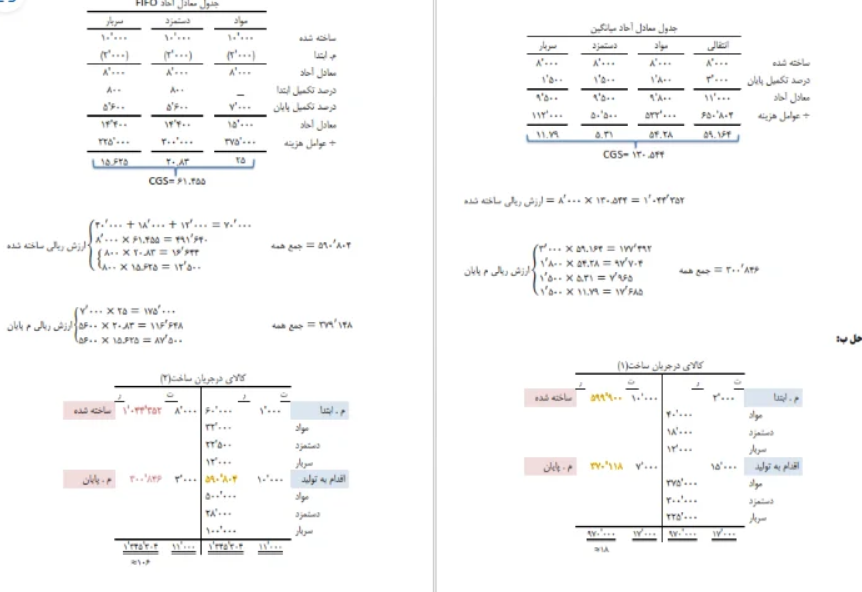 جدول معادل آحاد FIFO
مواد دستمزد سربار
ساخته شده ۱۰٬۰۰۰ ۱۰٬۰۰۰ ۱۰٬۰۰۰
م. ابتدا (۲٬۰۰۰) (۲٬۰۰۰) (۲٬۰۰۰)
معادل آحاد ۸٬۰۰۰ ۸٬۰۰۰ ۸٬۰۰۰
درصد تکمیل ابتدا _ ۸۰۰ ۸۰۰
درصد تکمیل پایان ۷٬۰۰۰ ۵٬۶۰۰ ۵٬۶۰۰
معادل آحاد ۱۵٬۰۰۰ ۱۴٬۴۰۰ ۱۴٬۴۰۰
÷ عوامل هزینه ۳۷۵٬۰۰۰ ۳۰۰٬۰۰۰ ۲۲۵٬۰۰۰
۲۵ ۲۰.۸۳ ۱۵.۶۲۵
CGS= ۶۱.۴۵۵
ارزش ریالی ساخته شده
۴۰٬۰۰۰ + ۱۸٬۰۰۰ + ۱۲٬۰۰۰ = ۷۰٬۰۰۰
۸٬۰۰۰ × ۶۱.۴۵۵ = ۴۹۱٬۶۴۰
۸۰۰ × ۲۰.۸۳ = ۱۶٬۶۶۴
۸۰۰ × ۱۵.۶۲۵ = ۱۲٬۵۰۰
جمع همه = ۵۹۰٬۸۰۴
ارزش ریالی م پایان
۷٬۰۰۰ × ۲۵ = ۱۷۵٬۰۰۰
۵۶۰۰ × ۲۰.۸۳ = ۱۱۶٬۶۴۸
۵۶۰۰ × ۱۵.۶۲۵ = ۸۷٬۵۰۰
جمع همه = ۳۷۹٬۱۴۸
کالای درجریان ساخت(۲)
ت ر ت ر
م . ابتدا ۱٬۰۰۰ ۶۰٬۰۰۰ ۸٬۰۰۰ ۱٬۰۴۴٬۳۵۲ ساخته شده
مواد ۳۲٬۰۰۰
دستمزد ۲۲٬۵۰۰
سربار ۱۲٬۰۰۰
اقدام به تولید ۱۰٬۰۰۰ ۵۹۰٬۸۰۴ ۳٬۰۰۰ ۳۰۰٬۸۴۶ م . پایان
مواد ۵۰۰٬۰۰۰
دستمزد ۲۸٬۰۰۰
سربار ۱۰۰٬۰۰۰
۱۱٬۰۰۰ ۱٬۳۴۵٬۳۰۴ ۱۱٬۰۰۰ ۱٬۳۴۵٬۳۰۴
≈۱۰۶
جدول معادل آحاد میانگین
انتقالی مواد دستمزد سربار
ساخته شده ۸٬۰۰۰ ۸٬۰۰۰ ۸٬۰۰۰ ۸٬۰۰۰
درصد تکمیل پایان ۳٬۰۰۰ ۱٬۸۰۰ ۱٬۵۰۰ ۱٬۵۰۰
معادل آحاد ۱۱٬۰۰۰ ۹٬۸۰۰ ۹٬۵۰۰ ۹٬۵۰۰
÷ عوامل هزینه ۶۵۰٬۸۰۴ ۵۳۲٬۰۰۰ ۵۰٬۵۰۰ ۱۱۲٬۰۰۰
۵۹.۱۶۴ ۵۴.۲۸ ۵.۳۱ ۱۱.۷۹
CGS= ۱۳۰.۵۴۴
ارزش ریالی ساخته شده = ۸٬۰۰۰ × ۱۳۰.۵۴۴ = ۱٬۰۴۴٬۳۵۲
ارزش ریالی م پایان
۳٬۰۰۰ × ۵۹.۱۶۴ = ۱۷۷٬۴۹۲
۱٬۸۰۰ × ۵۴.۲۸ = ۹۷٬۷۰۴
۱٬۵۰۰ × ۵.۳۱ = ۷٬۹۶۵
۱٬۵۰۰ × ۱۱.۷۹ = ۱۷٬۶۸۵
جمع همه = ۳۰۰٬۸۴۶
حل ب:
کالای درجریان ساخت(۱)
ت ر ت ر
م . ابتدا ۲٬۰۰۰ ۱۰٬۰۰۰ ۵۹۹٬۹۰۰ ساخته شده
مواد ۴۰٬۰۰۰
دستمزد ۱۸٬۰۰۰
سربار ۱۲٬۰۰۰
اقدام به تولید ۱۵٬۰۰۰ ۷٬۰۰۰ ۳۷۰٬۱۱۸ م . پایان
مواد ۳۷۵٬۰۰۰
دستمزد ۳۰۰٬۰۰۰
سربار ۲۲۵٬۰۰۰
۱۷٬۰۰۰ ۹۷۰٬۰۰۰ ۱۷٬۰۰۰ ۹۷۰٬۰۰۰
≈۱۸